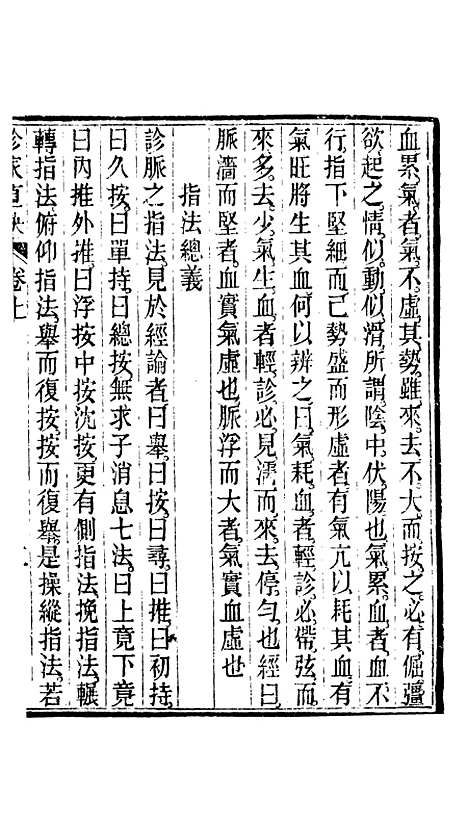 血累氣者氣不虛其勢雖來去不大而按之必有倔彊
欲起之情似動似滑所謂陰中伏陽也氣累血者血不
行指下堅細而己勢盛而形虛者有氣亢以耗其血有
氣旺將生其血何以辨之曰氣耗血者輕診必帶弦而
來多去少氣生血者輕診必見濡而來去停勻也經曰
脈濇而堅者血實氣虛也脈浮而大者氣實血虛也
指法總義
診脈之指法見於經論者曰舉曰按曰尋曰推曰初持
曰久按曰單持曰總按無求子消息七法曰上竟下竟
曰內推外推曰浮按中按沈按更有側指法挽指法輾
轉指法俯仰指法舉而復按按而復舉是操縱指法若
診家直訣 卷上